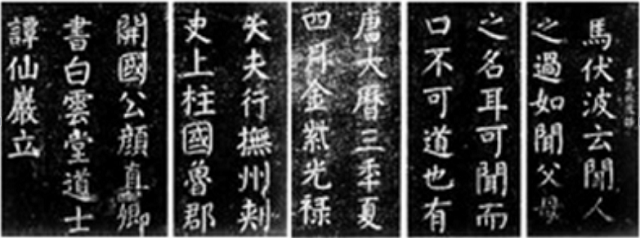 馬伏波云聞人
之過如聞父母
之名耳可聞而
口不可道也有
唐大曆三秊夏
四月金紫光禄
大夫行撫州刺
史上柱國魯郡
開國公顏真卿
書白雲堂道士
譚仙巖立